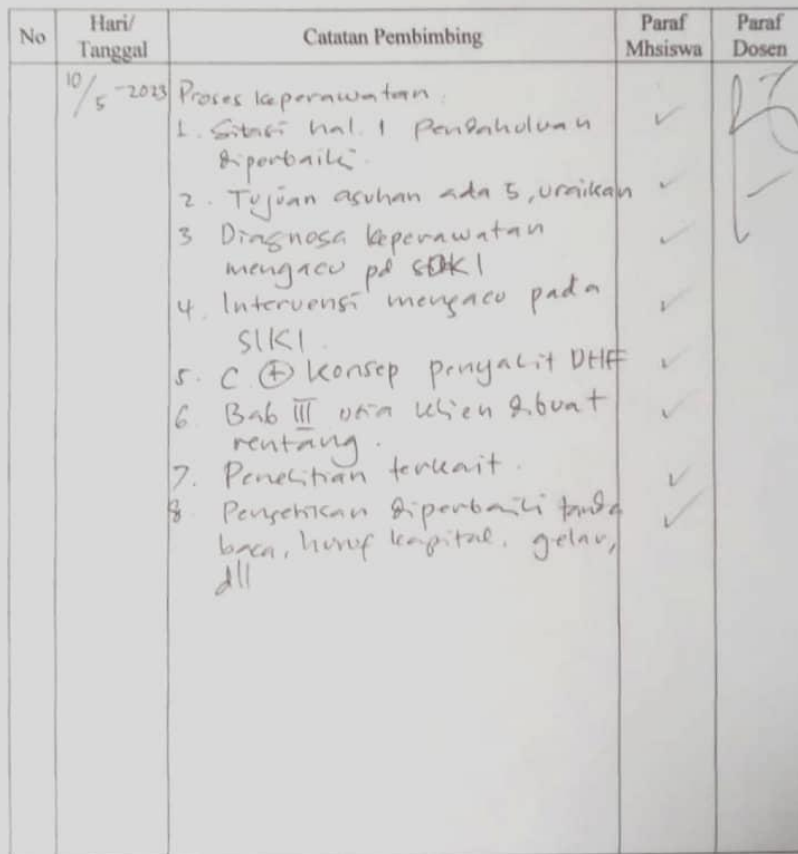 No
Hari/
Tanggal
Catatan Pembimbing
Paraf
Mhsiswa
Paraf
Dosen
10/5-2023 Proses keperawatan.
1. Sitasi hal. 1 Pendahuluan
diperbaiki.
2. Tujuan asuhan ada 5, uraikan
3 Diagnosa keperawatan
mengacu pd SDKI
4. Intervensi mengacu pada
SIKI.
5. C + konsep penyakit DHF
6. Bab III usia klien dibuat
rentang.
7. Penelitian terkait.
8 Pengetikan diperbaiki tanda
baca, huruf kapital, gelar,
dll